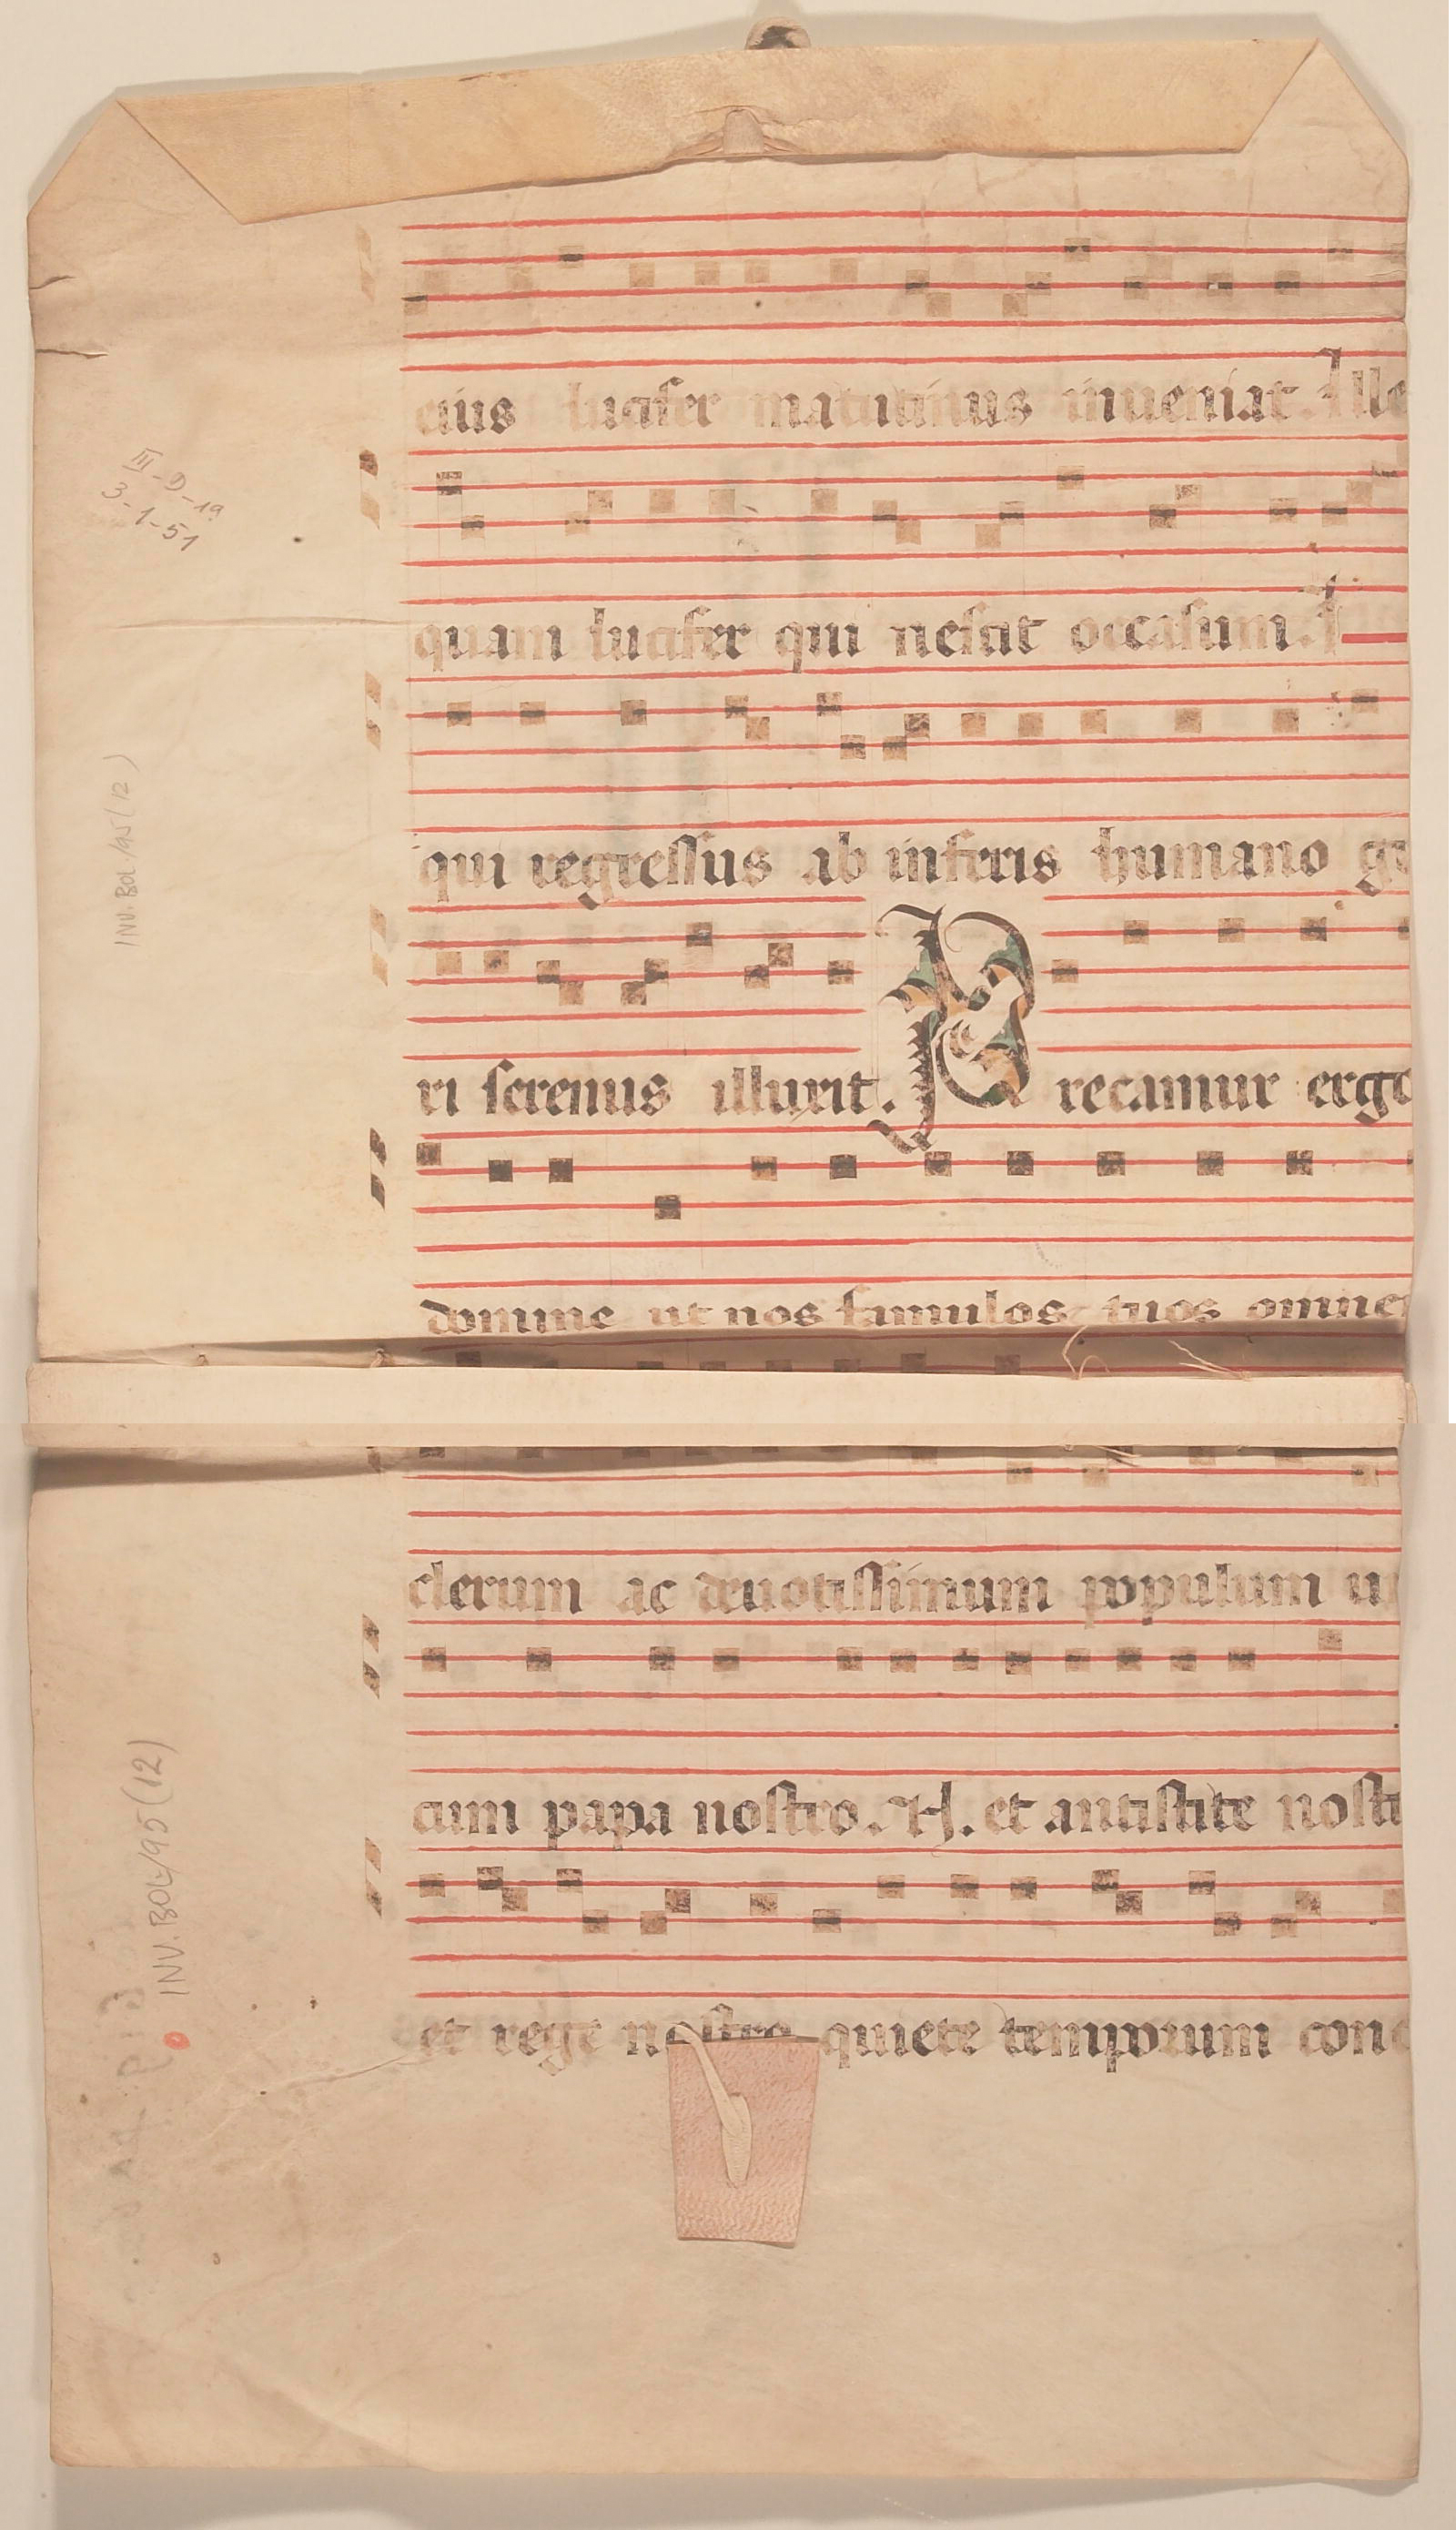 eius lucifer matutinus inueniat. Ille
quam lucifer qui nescit occasum. I
qui regressus ab inferis humano ge
ri serenus illuxit. Precamur ergo
domine ut nos famulos tuos omne
clerum ac deuotissimum populum u
cum papa nostro. N. et antistite nostr
et rege nostro quiete temporum conc
III-D-19
3-1-51
INV. BOL/95(12)
INV. BOL/95(12)